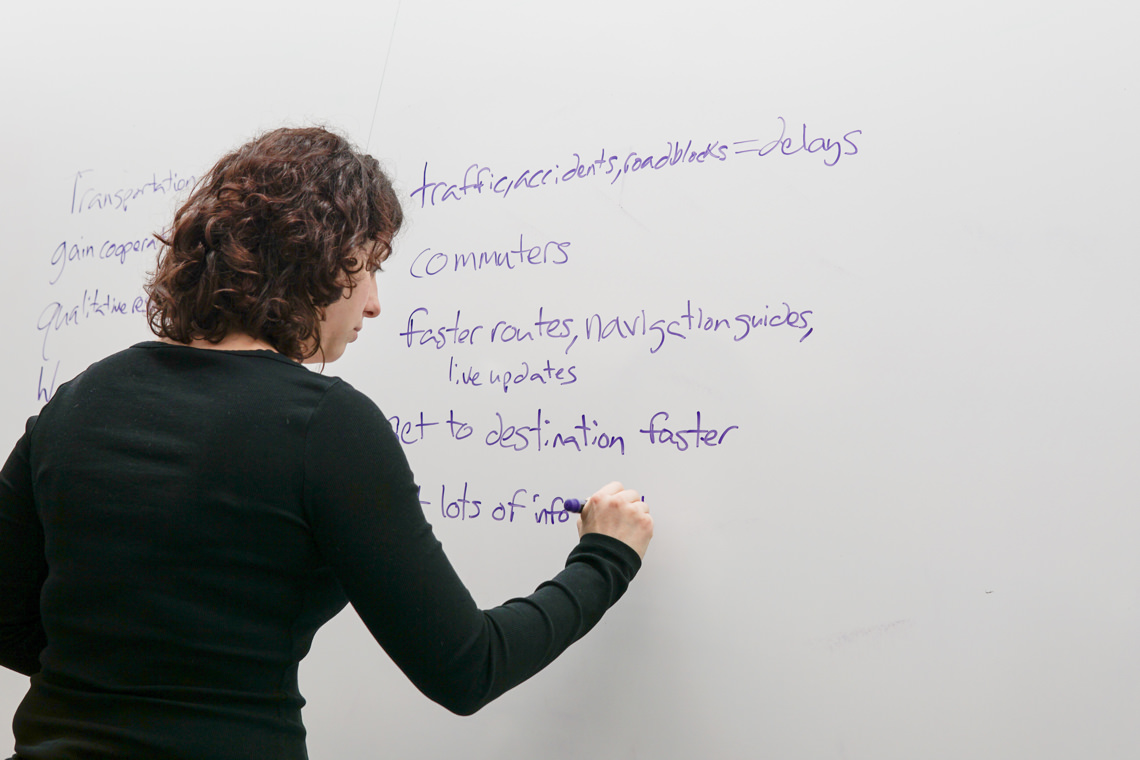 Transportation
gain
qualitative
traffic, accidents, roadblocks = delays
commuters
faster routes, navigation guides,
live updates
to destination faster
lots of info